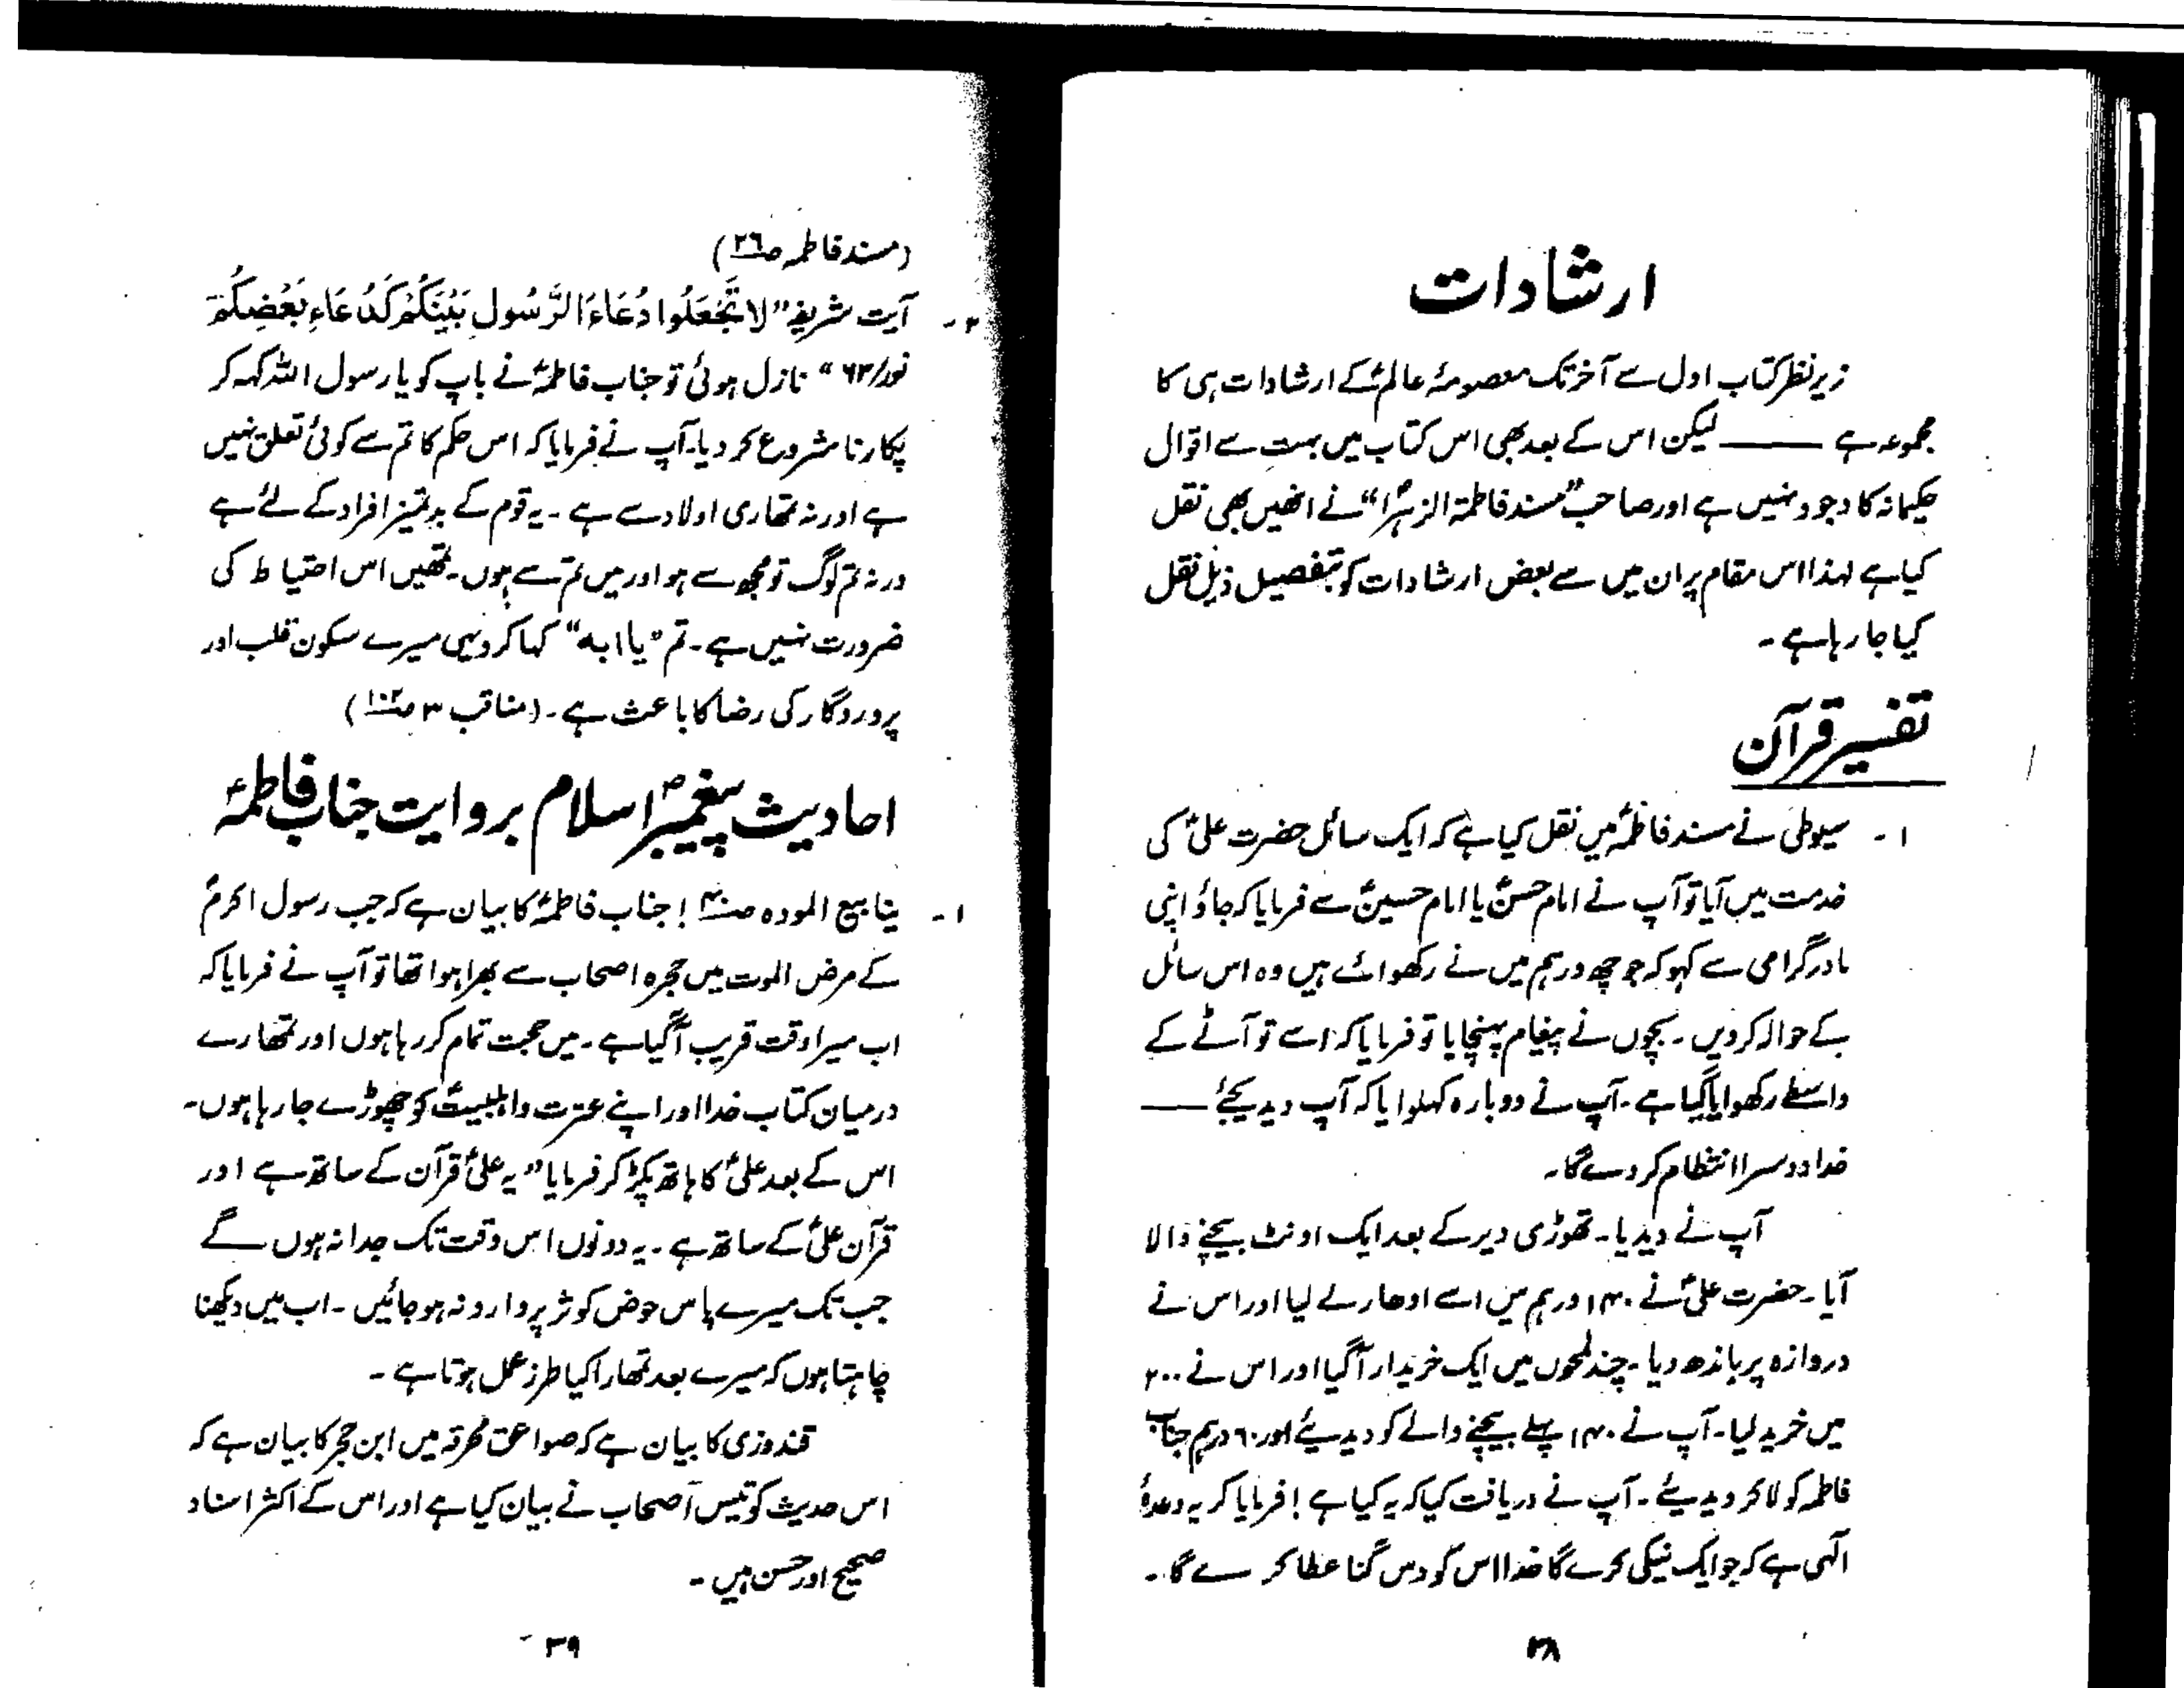 ارشادات
زیر نظر کتاب اول سے آخر تک معصومۂ عالمؑ کے ارشادات ہی کا
مجموعہ ہے ——— لیکن اس کے بعد بھی اس کتاب میں بہت سے اقوال
حکیمانہ کا وجود نہیں ہے اور صاحب "مسند فاطمۃ الزہراؑ" نے انھیں بھی نقل
کیا ہے لہذا اس مقام پر ان میں سے بعض ارشادات کو بتفصیل ذیل نقل
کیا جا رہا ہے۔
تفسیر قرآن
۱۔ سیوطی نے مسند فاطمہؑ میں نقل کیا ہے کہ ایک سائل حضرت علیؑ کی
خدمت میں آیا تو آپ نے امام حسنؑ یا امام حسینؑ سے فرمایا کہ جاؤ اپنی
مادر گرامی سے کہو کہ جو چھ درہم میں نے رکھوائے ہیں وہ اس سائل
کے حوالہ کر دیں۔ بچوں نے پیغام پہنچایا تو فرمایا کہ اسے تو آٹے کے
واسطے رکھوایا گیا ہے۔ آپ نے دوبارہ کہلوایا کہ آپ دیدیجئے ———
خدا دوسرا انتظام کر دے گا۔
آپ نے دیدیا۔ تھوڑی دیر کے بعد ایک اونٹ بیچنے والا
آیا۔ حضرت علیؑ نے ۱۴۰ درہم میں اسے ادھار لے لیا اور اس نے
دروازہ پر باندھ دیا۔ چند لمحوں میں ایک خریدار آگیا اور اس نے ۲۰۰
میں خرید لیا۔ آپ نے ۱۴۰ پہلے بیچنے والے کو دیدیئے اور ۶۰ درہم جناب
فاطمہ کو لا کر دیدیئے۔ آپ نے دریافت کیا کہ یہ کیا ہے! فرمایا کہ یہ وعدۂ
الٰہی ہے کہ جو ایک نیکی کرے گا خدا اس کو دس گنا عطا کرے گا۔
۳۸
(مسند فاطمہ ص۲۶)
۲۔ آیت شریفہ "لَا تَجْعَلُوا دُعَاءَ الرَّسُولِ بَيْنَكُمْ كَدُعَاءِ بَعْضِكُمْ
نور/۶۳" نازل ہوئی تو جناب فاطمہؑ نے باپ کو یا رسول اللہ کہہ کر
پکارنا شروع کر دیا۔ آپ نے فرمایا کہ اس حکم کا تم سے کوئی تعلق نہیں
ہے اور نہ تمھاری اولاد سے ہے۔ یہ قوم کے بدتمیز افراد کے لئے ہے
ورنہ تم لوگ تو مجھ سے ہو اور میں تم سے ہوں۔ تمھیں اس احتیاط کی
ضرورت نہیں ہے۔ تم "یا ابہ" کہا کرو یہی میرے سکون قلب اور
پروردگار کی رضا کا باعث ہے۔ (مناقب ۳
احادیث پیغمبرؐ اسلام بروایت جناب فاطمہؑ
۱۔ ینابیع المودہ ص۴۰! جناب فاطمہؑ کا بیان ہے کہ جب رسول اکرمؐ
کے مرض الموت میں حجرہ اصحاب سے بھرا ہوا تھا تو آپ نے فرمایا کہ
اب میرا وقت قریب آگیا ہے۔ میں حجت تمام کر رہا ہوں اور تمھارے
درمیان کتاب خدا اور اپنے عترت و اہلبیتؑ کو چھوڑے جا رہا ہوں۔
اس کے بعد علیؑ کا ہاتھ پکڑ کر فرمایا "یہ علیؑ قرآن کے ساتھ ہے اور
قرآن علیؑ کے ساتھ ہے۔ یہ دونوں اس وقت تک جدا نہ ہوں گے
جب تک میرے پاس حوض کوثر پر وارد نہ ہو جائیں۔ اب میں دیکھنا
چاہتا ہوں کہ میرے بعد تمھارا کیا طرز عمل ہوتا ہے۔
قندوزی کا بیان ہے کہ صواعق محرقہ میں ابن حجر کا بیان ہے کہ
اس حدیث کو تیس اصحاب نے بیان کیا ہے اور اس کے اکثر اسناد
صحیح اور حسن ہیں۔
۳۹